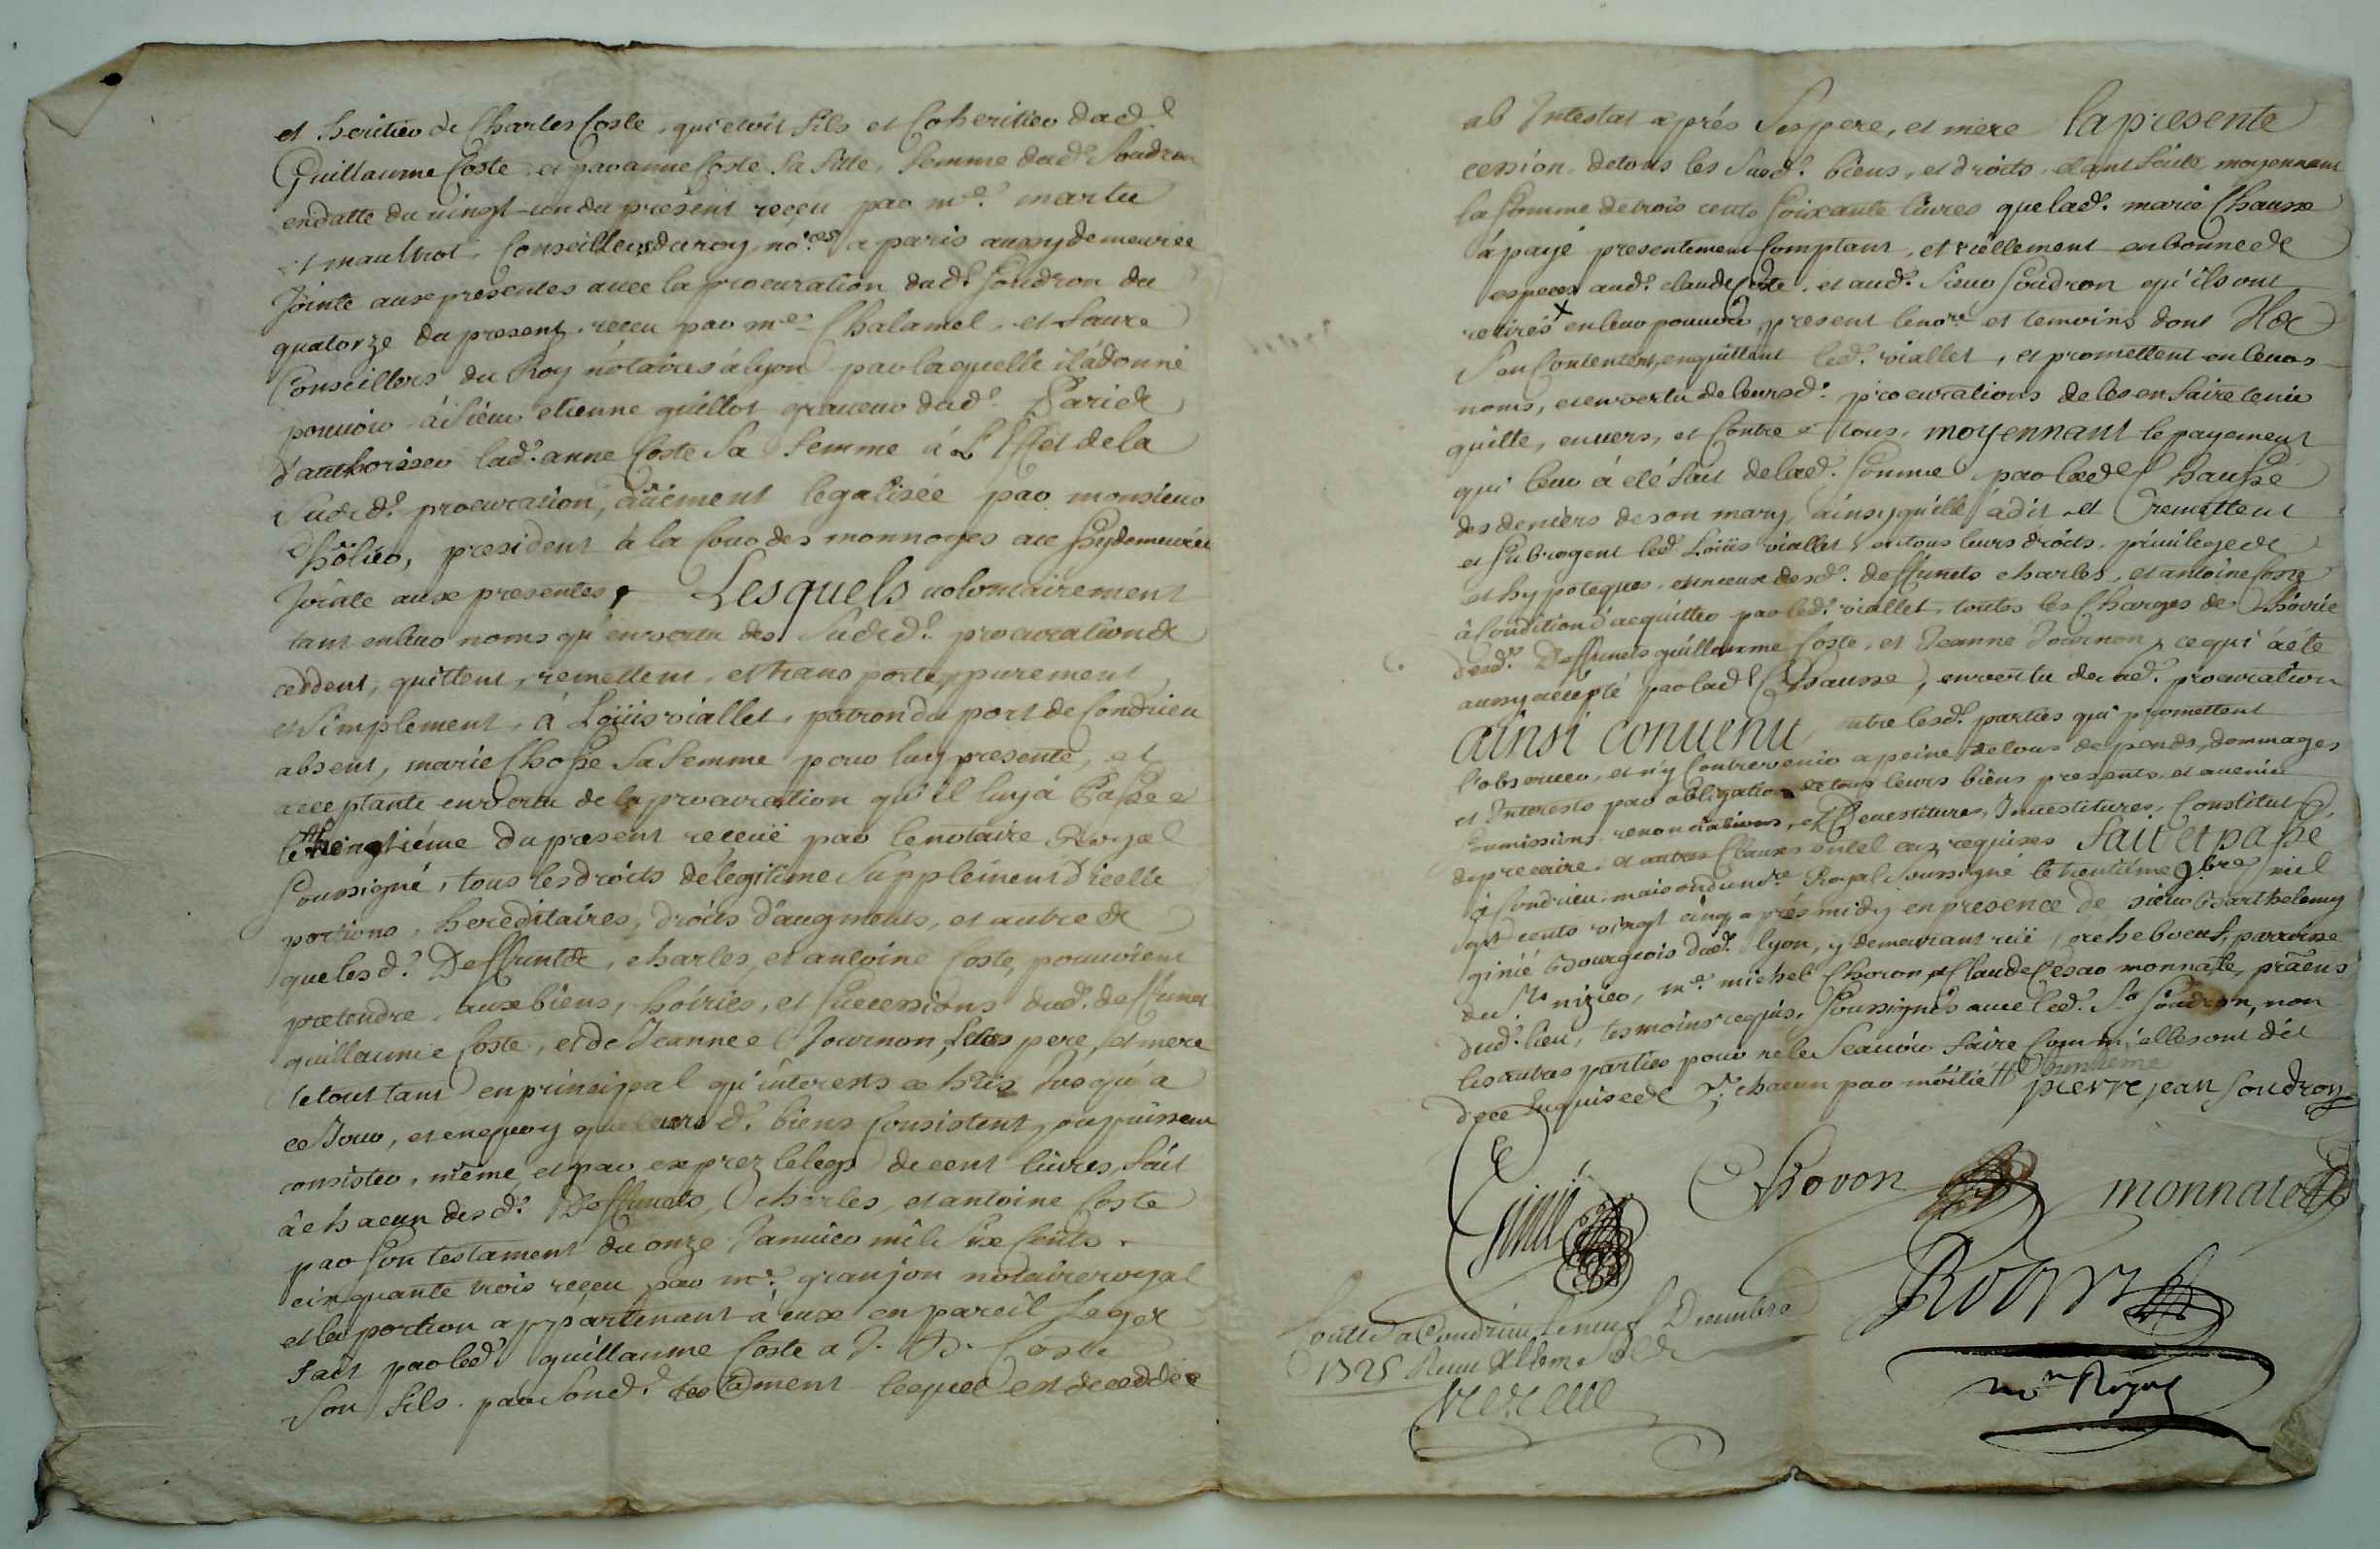 et heritier de Charles Coste, qui etoit fils et Coheritier dud.
Guillaume Coste et par anne Coste sa fille, femme dud. Soudron
en datte du vingt-un du present reçeu par me. martu
et maultrot, Conseillers du roy, no.res a paris aussy demeurée
Jointe aux presentes avec la procuration dud. Soudron du
quatorze du present reçeu par me. Chalamel et faure
Conseillers du Roy notaires à lyon par laquelle il à donné
pouvoir à sieur etienne guillot graveur dud. Paris &
d'authoriser lad. anne Coste sa femme à L'Effet de la
susd. procuration, düement legalisée par monsieur
president à la Cour des monnoyes aussy demeurée
Jointe aux presentes, Lesquels volontairement
tant en leur noms qu'en vertu des susd. procuration &
ceddent, quittent, remettent, et transportent purement
et simplement, à Loüis viallet, patron du port de Condrieu
absent, marie Chosse sa femme pour luy presente, et
acceptante en vertu de la procuration qu'il luy à Passée
le vingtiéme du present reçeüe par le notaire Royal
soussigné, tous les droits de legitime supplément d'icelle
portions, hereditaires, droits d'augments, et autre &
que lesd. Deffunts, charles, et antoine Coste, pouvoient
pretendre, aux biens, hoiries, et successions dud. deffunct
guillaume Coste, et de Jeanne Journon, leurs pere, et mere
le tout tant en principal qu'interests echeus Jusqu'a
ce Jour, et en quoy que leurs d. biens Consistent, ou puissent
consister, même, et par exprez le legs de cent livres, fait
à chacun desd. Deffuncts, charles, et antoine Coste
par son testament du onze Janvier mil six Cents
cinquante trois reçeu par me. granjon notaire royal
et la portion appartenant à eux en pareil Legs
fait par led. guillaume Coste a J. B. Coste
son fils par sond. testament lequel est deceddée
ab Intestat aprés ses pere, et mere la presente
cession de tous les susd. biens, et droits étant faite moyennant
la somme de trois cents soixante livres que lad. marie Chausse
à payé presentement Comptant, et réellement en bonne &
especes aud. claude Coste et aud. sieur Soudron qu'ils ont
retirés x en leur pouvoir, present le no.re et temoins dont
s'en Contentent, en quittent led. viallet, et promettent en leurs
noms, et en vertu de leursd. procurations de les en faire tenir
quitte, envers, et Contre tous, moyennant le payement
qui leur à eté fait de lad. somme par lad. Chausse
des deniers de son mary, ainsy qu'elle à dit et remettent
et subrogent led. Loüis viallet en tous leurs droits, privileges
et hypoteques, et en ceux desd. deffuncts charles, et antoine Coste
à Condition d'acquitter par led. viallet toutes les Charges de hoirie
desd. Deffuncts guillaume Coste, et Jeanne Journon, ce qui à eté
aussy accepté par lad. Chausse, en vertu de sad. procuration
ainsi convenu, entre lesd. parties qui promettent
l'observer, et n'y Contrevenir a peine de tous depends, dommages
et Interests par obligation de tous leurs biens presents, et avenir
soumissions, renonciations, et Devestitures, Investitures, Constitut
de precaire, et autres Clauses en tel cas requises fait et passé
à Condrieu maison du no.re Royal soussigné le trentiéme 9bre mil
sept cents vingt cinq aprés midy en presence de sieur Barthelemy
ginié Bourgeois dud. lyon, y demeurant rüe paroisse
du St. nizier, me. michel Choron, et Claude Cesar monnate, praticiens
dud. lieu, tesmoins requis, soussignés avec led. Sr. Soudron, non
les autres parties pour ne le sçavoir faire Comm'elles ont dit
de ce Enquises & chacun par moitié
pierre jean Soudron
Ginié
Choron
monnate
no.re Royal
Conttlé a Condrieu le neuf Decembre
1725 Reçu